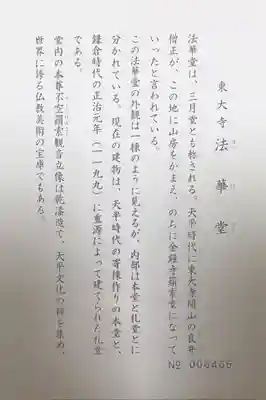 東大寺 法華堂
ほっけどう
法華堂は、三月堂とも称される。天平時代に東大寺開山の良弁
僧正が、この地に山房をかまえ、のちに金鐘寺羂索堂になって
いったと言われている。
この法華堂の外観は一棟のように見えるが、内部は本堂と礼堂とに
分かれている。現在の建物は、天平時代の寄棟作りの本堂と、
鎌倉時代の正治元年(一一九九)に重源によって建てられた礼堂
である。
堂内の本尊不空羂索観音立像は乾漆造で、天平文化の粋を集め、
世界に誇る仏教美術の宝庫でもある。
№ 006466